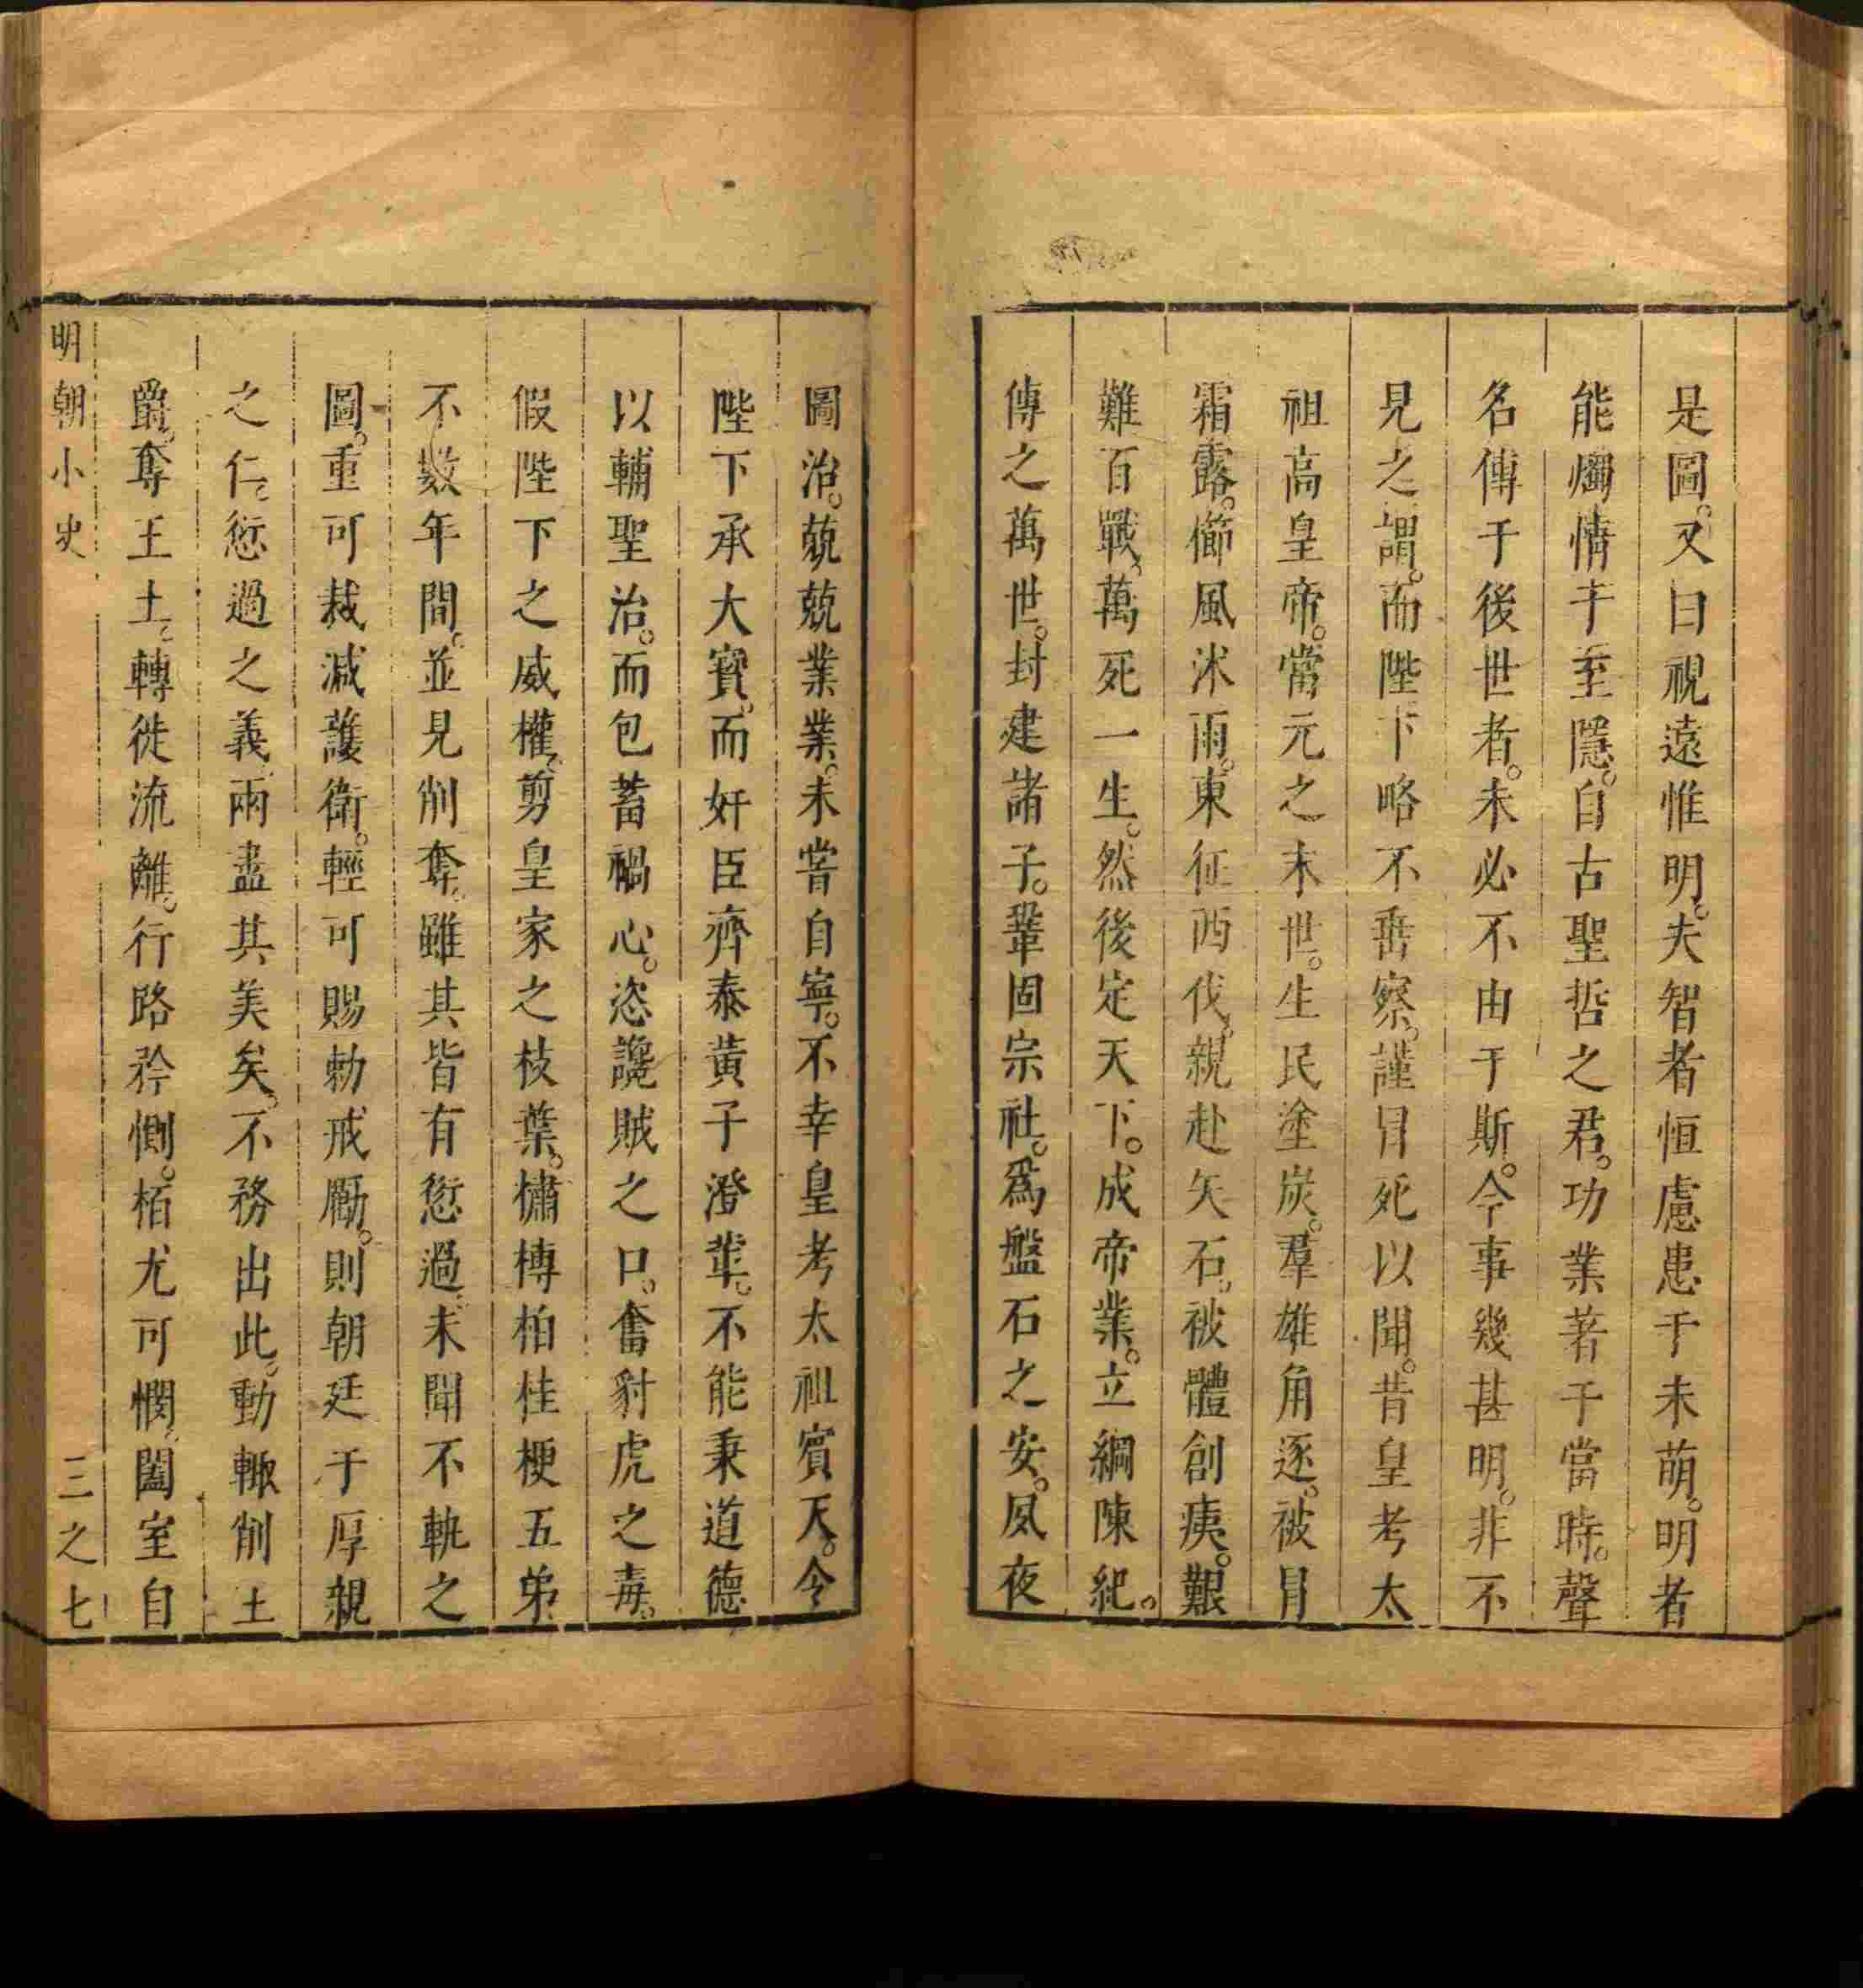 是圖。又曰視遠惟明。夫智者恒慮患于未萌。明者
能燭情于至隱。自古聖哲之君。功業著于當時。聲
名傳于後世者。未必不由于斯。今事幾甚明。非不
見之謂。而陛下略不垂察。謹冒死以聞。昔皇考太
祖高皇帝。當元之末世。生民塗炭。羣雄角逐。被冒
霜露。櫛風沐雨。東征西伐。親赴矢石。被體創痍。艱
難百戰、萬死一生。然後定天下。成帝業。立綱陳紀。
傳之萬世。封建諸子。鞏固宗社。爲盤石之安。夙夜
圖治。兢兢業業。未嘗自寧。不幸皇考太祖賓天。今
陛下承大寶。而奸臣齊泰黃子澄輩。不能秉道德
以輔聖治。而包蓄禍心。恣讒賊之口。奮豺虎之毒。
假陛下之威權、剪皇家之枝葉。櫹榑柏桂梗五弟
不數年間。並見削奪。雖其皆有愆過、未聞不軌之
圖。重可裁減護衛。輕可賜勅戒勵。則朝廷于厚親
之仁、愆過之義、兩盡其美矣。不務出此。動輙削土
爵。奪王土、轉徙流離。行路矜惻。栢尤可憫、闔室自
明朝小史
三之七